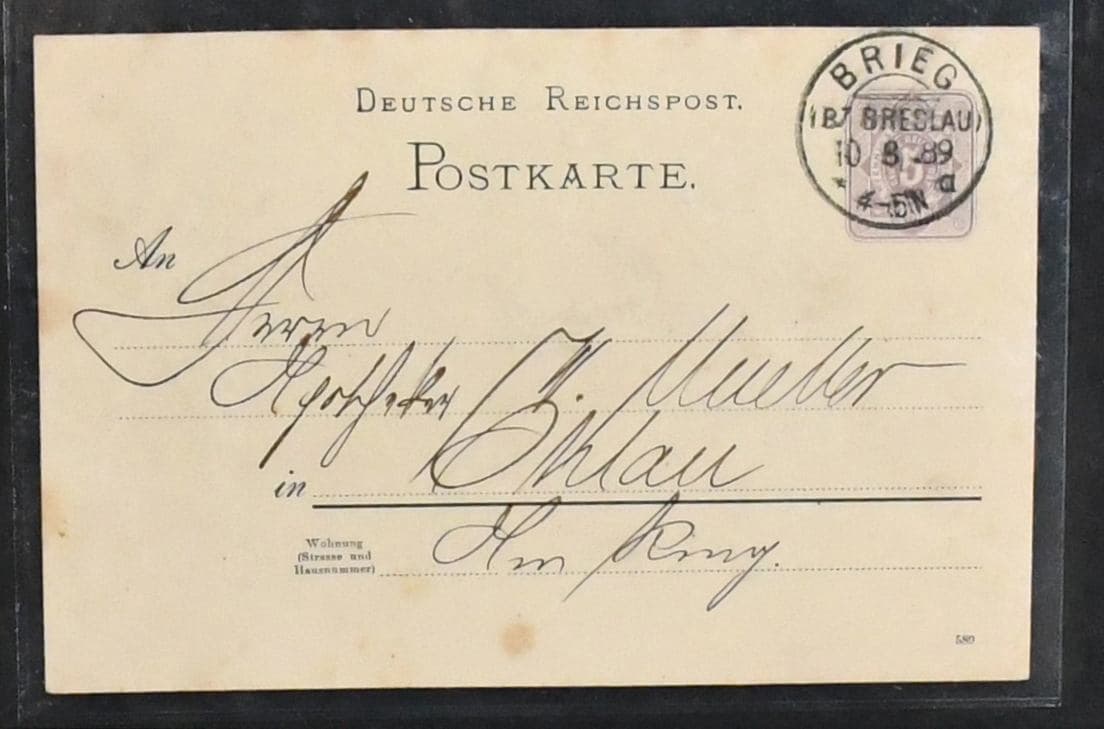 DEUTSCHE REICHSPOST.
POSTKARTE.
BRIEG
(BZ. BRESLAU)
10 8 89
4-5N
* a
5
An
Herrn
Apotheker Mueller
in Ohlau
Wohnung
(Strasse und
Hausnummer)
Am Ring.
589